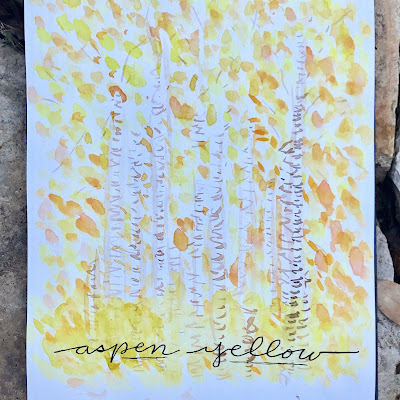 aspen yellow